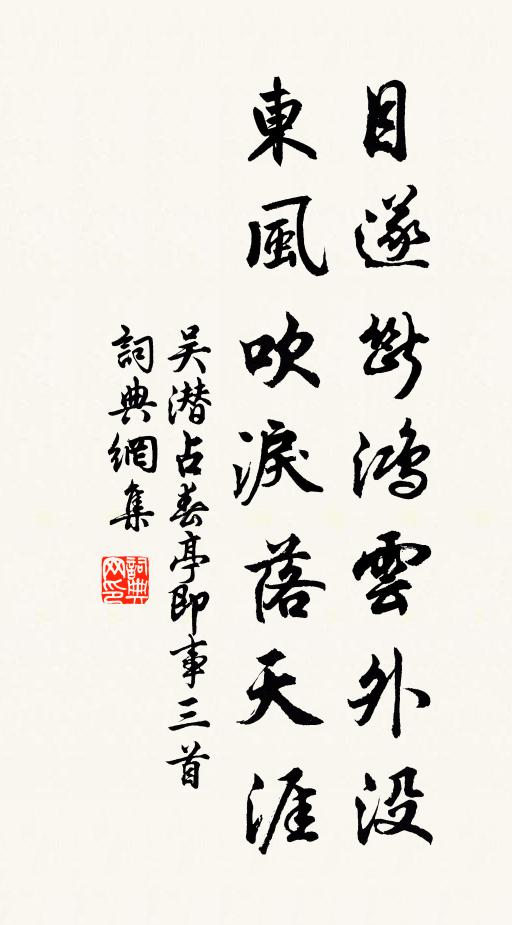 目遂斷鴻雲外没
東風吹淚落天涯
吴潜占春亭即事三首
詞典網集
詞典网印